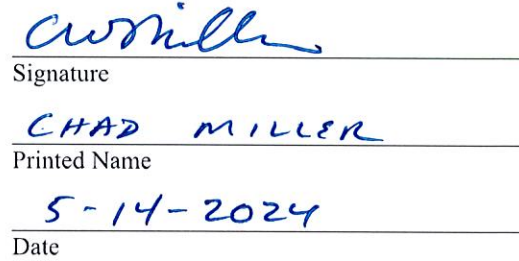 CWMiller
Signature
CHAD MILLER
Printed Name
5-14-2024
Date